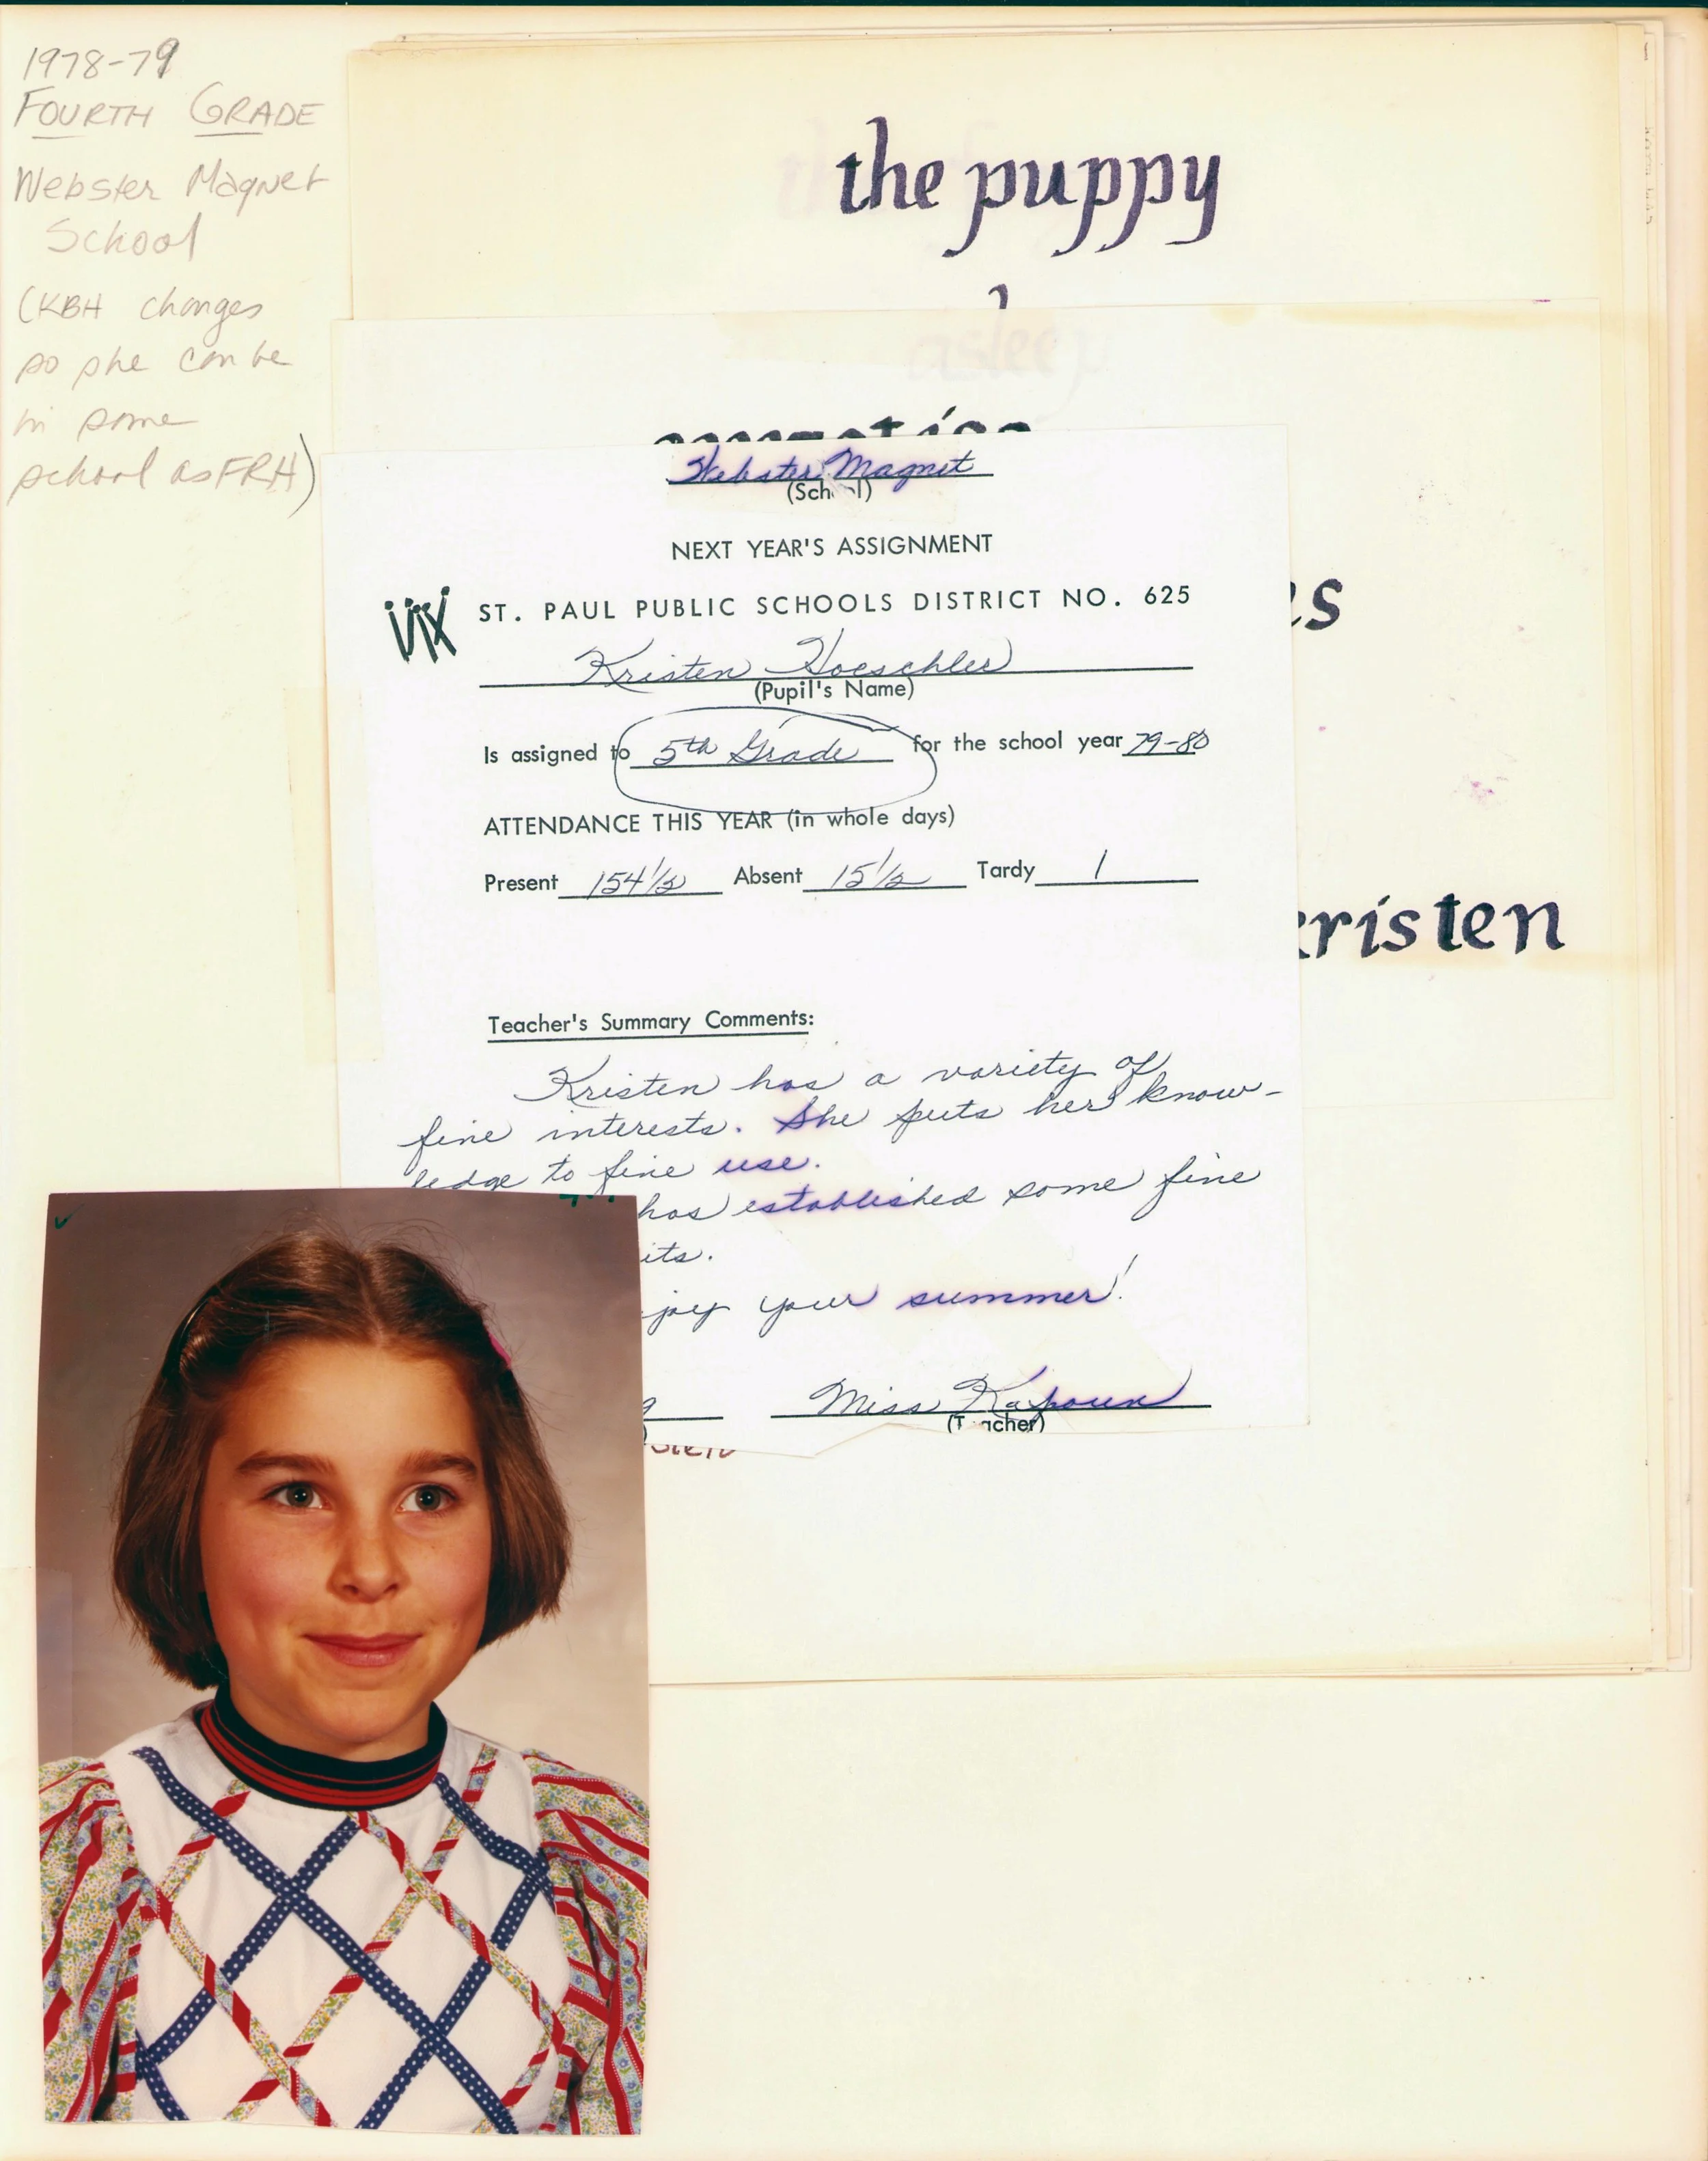 1978-79
FOURTH GRADE
Webster Magnet
School
(KBH changes
so she can be
in same
school as FRH)
the puppy
asleep
Webster Magnet
(School)
NEXT YEAR'S ASSIGNMENT
ST. PAUL PUBLIC SCHOOLS DISTRICT NO. 625
Kristen Hoeschler
(Pupil's Name)
Is assigned to 5th Grade for the school year 79-80
ATTENDANCE THIS YEAR (in whole days)
Present 154 1/2 Absent 15 1/2 Tardy 1
is
kristen
Teacher's Summary Comments:
Kristen has a variety of
fine interests. She puts her know-
ledge to fine use.
has established some fine
its.
joy your summer!
Miss
(Teacher)